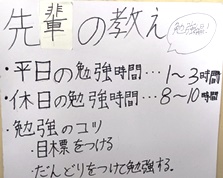 先輩の教え
勉強編!
・平日の勉強時間…1～3時間
・休日の勉強時間…8～10時間
・勉強のコツ
・目標をつける
・だんどりをつけて勉強する。